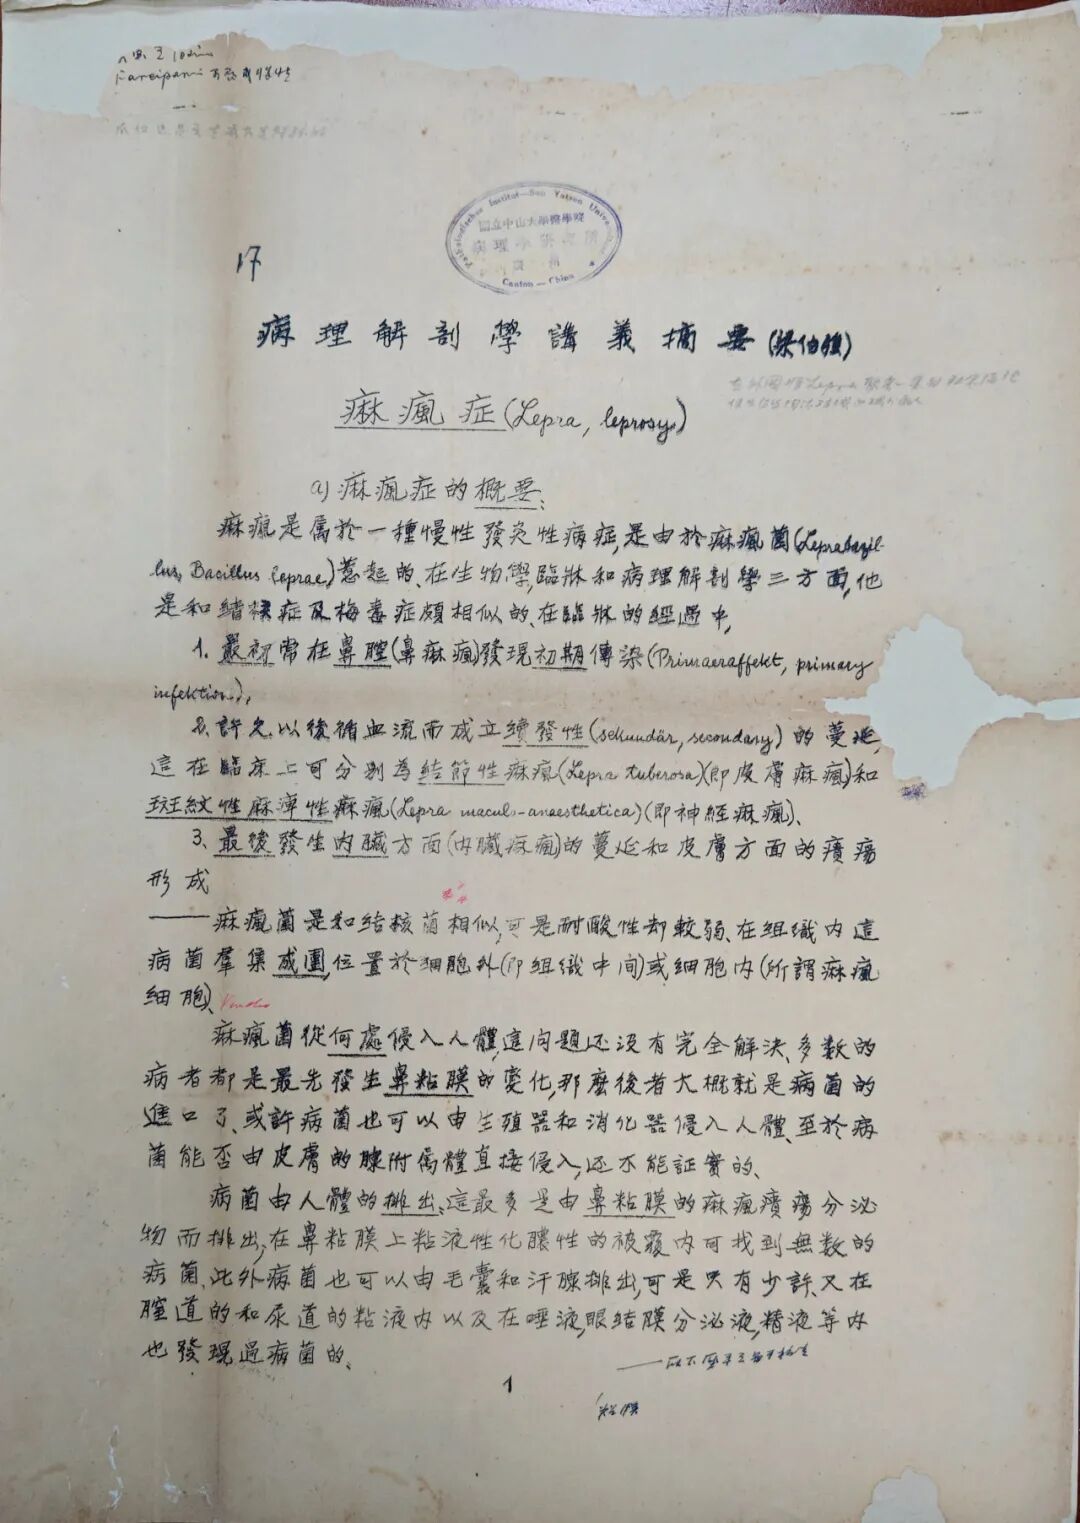 Pathologisches Institut—Sun Yatsen Universität
國立中山大學醫學院
病理學研究所
廣州
Canton—China
17
病理解剖學講義摘要(梁伯強)
痳瘋症(Lepra, leprosy)
a)痳瘋症的概要:
痳瘋是属於一種慢性發炎性病症,是由於痳瘋菌(Leprabazil-
lus, Bacillus leprae)惹起的、在生物學,臨牀和病理解剖學三方面,他
是和結核症及梅毒症頗相似的、在臨牀的經過中,
1. 最初常在鼻腔(鼻痳瘋)發現初期傳染(Primaeraffekt, primary
infektion),
2. 許久以後循血流而成立續發性(sekundär, secondary)的蔓延,
這在臨床上可分別為結節性痳瘋(Lepra tuberosa)(即皮膚痳瘋)和
斑紋性麻痺性痳瘋(Lepra maculo-anaesthetica)(即神經痳瘋)、
3、最後發生内臟方面(内臟痳瘋)的蔓延和皮膚方面的潰瘍
形成
——痳瘋菌是和结核菌相似,可是耐酸性却較弱、在組織内這
病菌羣集成團,位置於细胞外(即组織中间)或细胞内(所謂痳瘋
细胞)、
痳瘋菌從何處侵入人體,這问題还没有完全解决、多数的
病者都是最先發生鼻粘膜的变化,那麼後者大概就是病菌的
進口了、或許病菌也可以由生殖器和消化器侵入人體、至於病
菌能否由皮膚的腺附属體直接侵入,还不能証實的、
病菌由人體的排出、這最多是由鼻粘膜的痳瘋潰瘍分泌
物而排出,在鼻粘膜上粘液性化膿性的被覆内可找到無数的
病菌、此外病菌也可以由毛囊和汗腺排出,可是只有少許、又在
腟道的和尿道的粘液内以及在唾液,眼结膜分泌液,精液等内
也發現過病菌的、
1